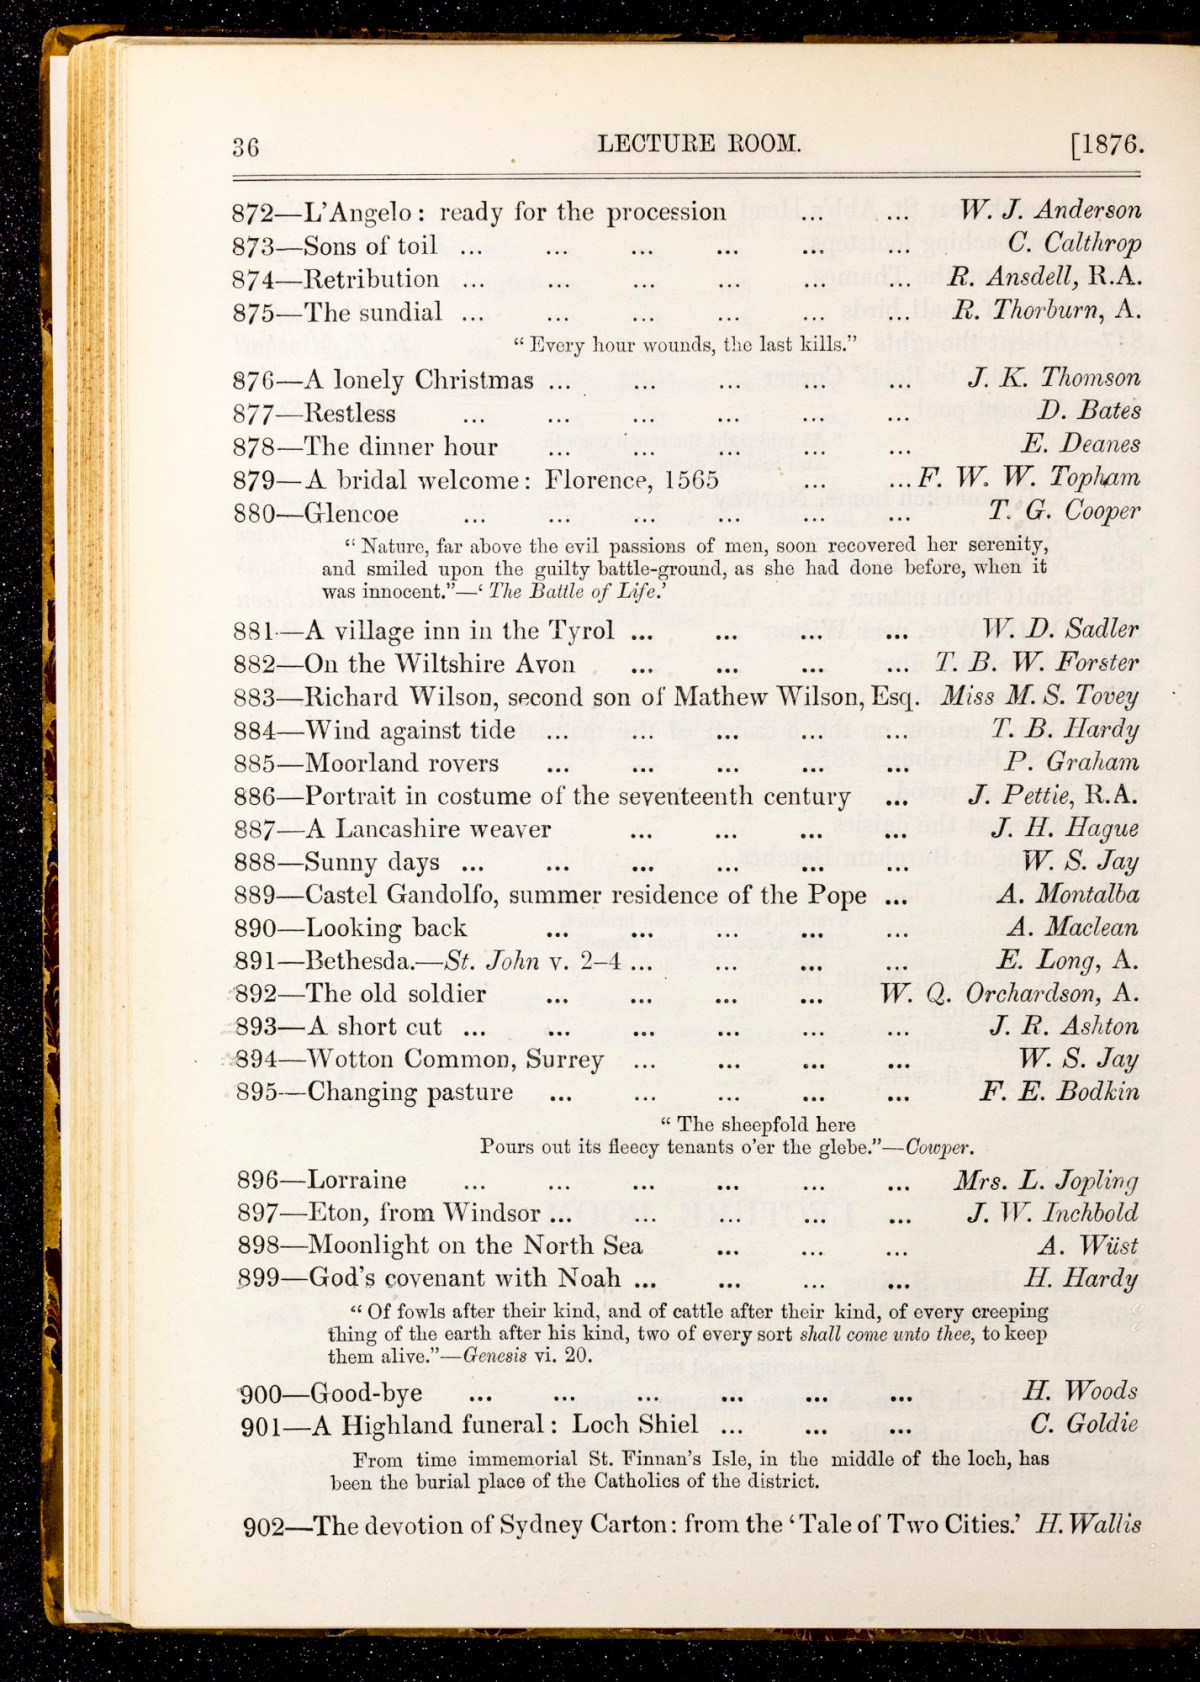 36 LECTURE ROOM. [1876.
872—L'Angelo : ready for the procession ... ... W. J. Anderson
873—Sons of toil ... ... ... ... ... ... C. Calthrop
874—Retribution ... ... ... ... ... ... R. Ansdell, R.A.
875—The sundial ... ... ... ... ... ... R. Thorburn, A.
“ Every hour wounds, the last kills.”
876—A lonely Christmas ... ... ... ... ... J. K. Thomson
877—Restless ... ... ... ... ... ... D. Bates
878—The dinner hour ... ... ... ... ... E. Deanes
879—A bridal welcome : Florence, 1565 ... ... F. W. W. Topham
880—Glencoe ... ... ... ... ... ... T. G. Cooper
“ Nature, far above the evil passions of men, soon recovered her serenity,
and smiled upon the guilty battle-ground, as she had done before, when it
was innocent.”—‘ The Battle of Life.’
881—A village inn in the Tyrol ... ... ... ... W. D. Sadler
882—On the Wiltshire Avon ... ... ... ... T. B. W. Forster
883—Richard Wilson, second son of Mathew Wilson, Esq. Miss M. S. Tovey
884—Wind against tide ... ... ... ... ... T. B. Hardy
885—Moorland rovers ... ... ... ... ... P. Graham
886—Portrait in costume of the seventeenth century ... J. Pettie, R.A.
887—A Lancashire weaver ... ... ... ... J. H. Hague
888—Sunny days ... ... ... ... ... ... W. S. Jay
889—Castel Gandolfo, summer residence of the Pope ... A. Montalba
890—Looking back ... ... ... ... ... A. Maclean
891—Bethesda.—St. John v. 2–4 ... ... ... ... E. Long, A.
892—The old soldier ... ... ... ... W. Q. Orchardson, A.
893—A short cut ... ... ... ... ... ... J. R. Ashton
894—Wotton Common, Surrey ... ... ... ... W. S. Jay
895—Changing pasture ... ... ... ... ... F. E. Bodkin
“ The sheepfold here
Pours out its fleecy tenants o'er the glebe.”—Cowper.
896—Lorraine ... ... ... ... ... ... Mrs. L. Jopling
897—Eton, from Windsor ... ... ... ... ... J. W. Inchbold
898—Moonlight on the North Sea ... ... ... A. Wüst
899—God's covenant with Noah ... ... ... ... H. Hardy
“ Of fowls after their kind, and of cattle after their kind, of every creeping
thing of the earth after his kind, two of every sort shall come unto thee, to keep
them alive.”—Genesis vi. 20.
900—Good-bye ... ... ... ... ... ... H. Woods
901—A Highland funeral : Loch Shiel ... ... ... C. Goldie
From time immemorial St. Finnan's Isle, in the middle of the loch, has
been the burial place of the Catholics of the district.
902—The devotion of Sydney Carton : from the ‘ Tale of Two Cities.’ H. Wallis